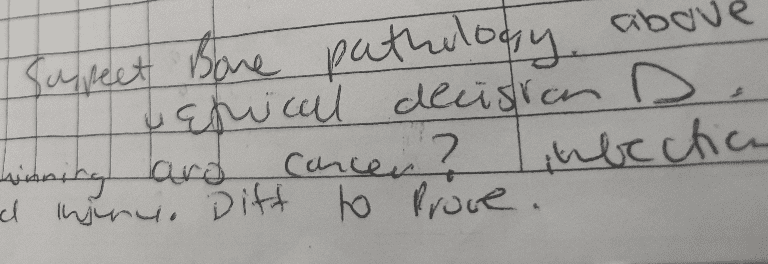 Suspect Bone pathology. above
decision D.
and cancer? infection
d injury. Diff to Prove.